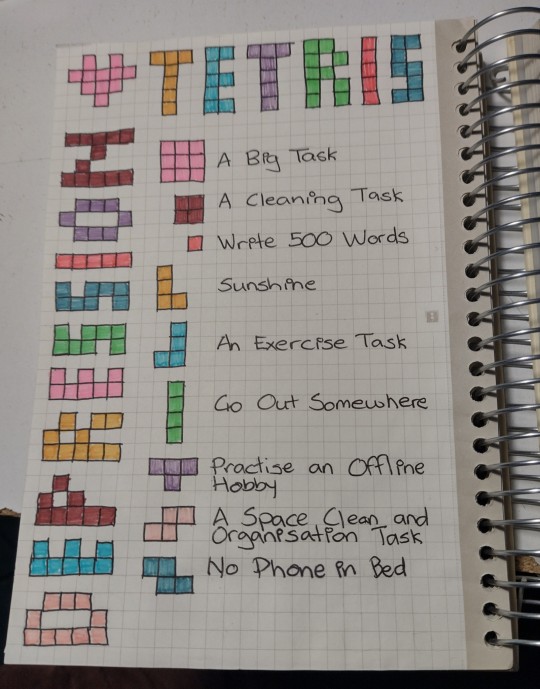 TETRIS
DEPRESSION
A Big Task
A Cleaning Task
Write 500 Words
Sunshine
An Exercise Task
Go Out Somewhere
Practise an Offline
Hobby
A Space Clean and
Organisation Task
No Phone in Bed